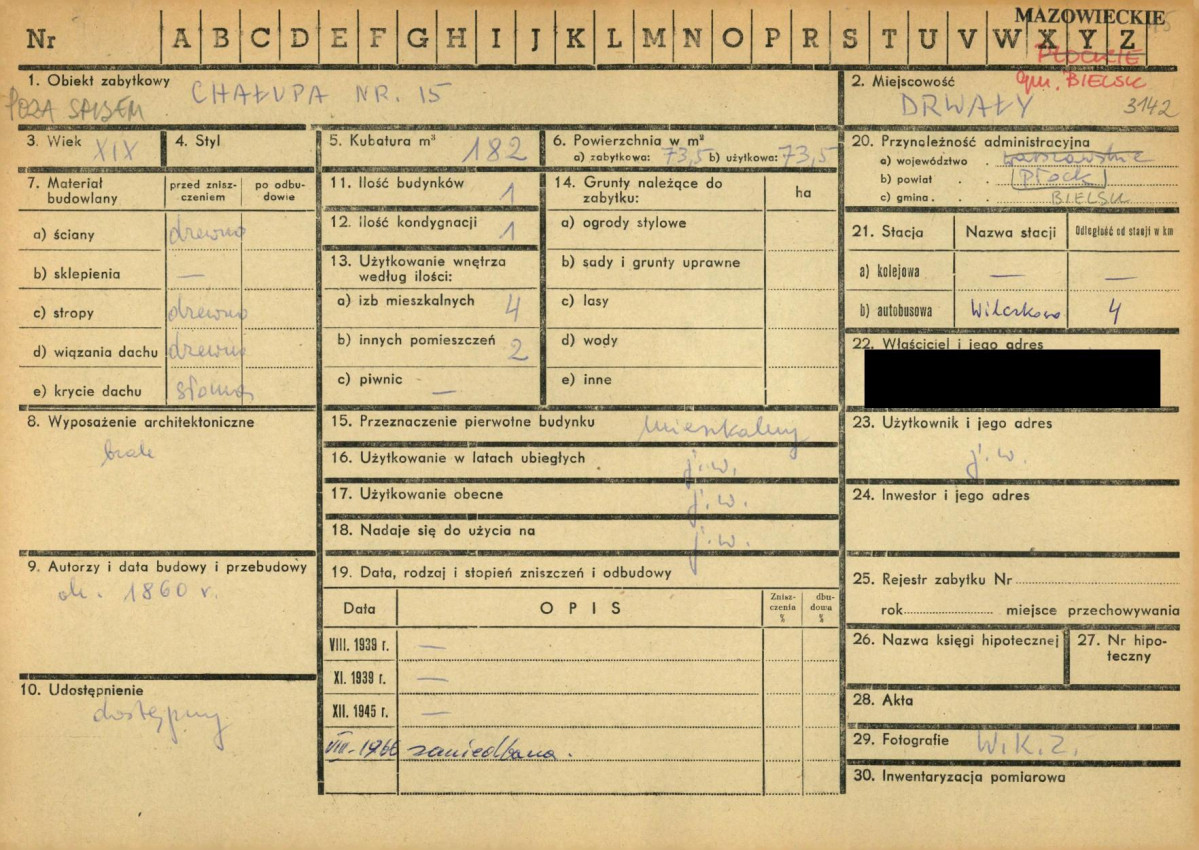 MAZOWIECKIE
Nr A B C D E F G H I J K L M N O P R S T U V W X Y Z
PŁOCKIE
gm. BIELSK
1. Obiekt zabytkowy
CHAŁUPA NR. 15
POZA SPISEM
2. Miejscowość
DRWAŁY
3142
3. Wiek XIX
4. Styl
5. Kubatura m³ 182
6. Powierzchnia w m²
a) zabytkowa: 73,5 b) użytkowa: 73,5
7. Materiał budowlany
przed zniszczeniem
po odbudowie
a) ściany drewno
b) sklepienia —
c) stropy drewno
d) wiązania dachu drewno
e) krycie dachu słoma
8. Wyposażenie architektoniczne
brak
9. Autorzy i data budowy i przebudowy
ok. 1860 r.
10. Udostępnienie
dostępny
11. Ilość budynków 1
12. Ilość kondygnacji 1
13. Użytkowanie wnętrza według ilości:
a) izb mieszkalnych 4
b) innych pomieszczeń 2
c) piwnic —
14. Grunty należące do zabytku:
ha
a) ogrody stylowe
b) sady i grunty uprawne
c) lasy
d) wody
e) inne
15. Przeznaczenie pierwotne budynku mieszkalny
16. Użytkowanie w latach ubiegłych j.w.
17. Użytkowanie obecne j.w.
18. Nadaje się do użycia na j.w.
19. Data, rodzaj i stopień zniszczeń i odbudowy
Data
OPIS
Zniszczenia %
dbudowa %
VIII. 1939 r. —
XI. 1939 r. —
XII. 1945 r. —
VIII-1966 zaniedbana.
20. Przynależność administracyjna
a) województwo . warszawskie
b) powiat . . Płock
c) gmina . . BIELSK
21. Stacja
Nazwa stacji
Odległość od stacji w km
a) kolejowa — —
b) autobusowa Wilczkowo 4
22. Właściciel i jego adres
23. Użytkownik i jego adres
j.w.
24. Inwestor i jego adres
25. Rejestr zabytku Nr
rok miejsce przechowywania
26. Nazwa księgi hipotecznej
27. Nr hipoteczny
28. Akta
29. Fotografie W.K.Z.
30. Inwentaryzacja pomiarowa